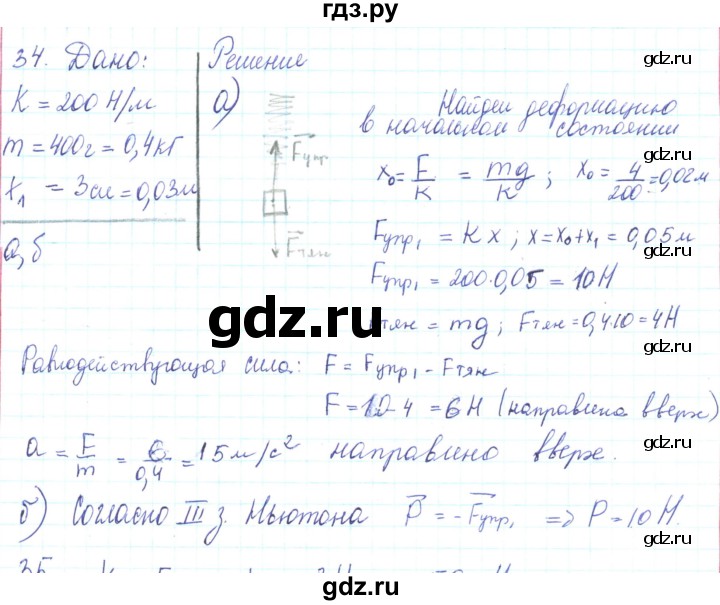 гдз.ру
34. Дано:
K = 200 Н/м
m = 400г = 0,4кг
x₁ = 3см = 0,03м
а, б
Решение
а)
Fупр
Fтяж
Найдем деформацию
в начальном состоянии
x₀ = F/K = mg/K ; x₀ = 4/200 = 0,02м
Fупр₁ = Kx ; x = x₀ + x₁ = 0,05м
Fупр₁ = 200·0,05 = 10Н
Fтяж = mg ; Fтяж = 0,4·10 = 4Н
Равнодействующая сила: F = Fупр₁ - Fтяж
F = 10 - 4 = 6Н (направлена вверх)
a = F/m = 6/0,4 = 15м/с² направлено вверх.
б) Согласно III з. Ньютона P = -Fупр₁ => P = 10Н.
35.
gdz.ru
gdz.ru
gdz.ru
gdz.ru
gdz.ru
gdz.ru
gdz.ru
gdz.ru
gdz.ru